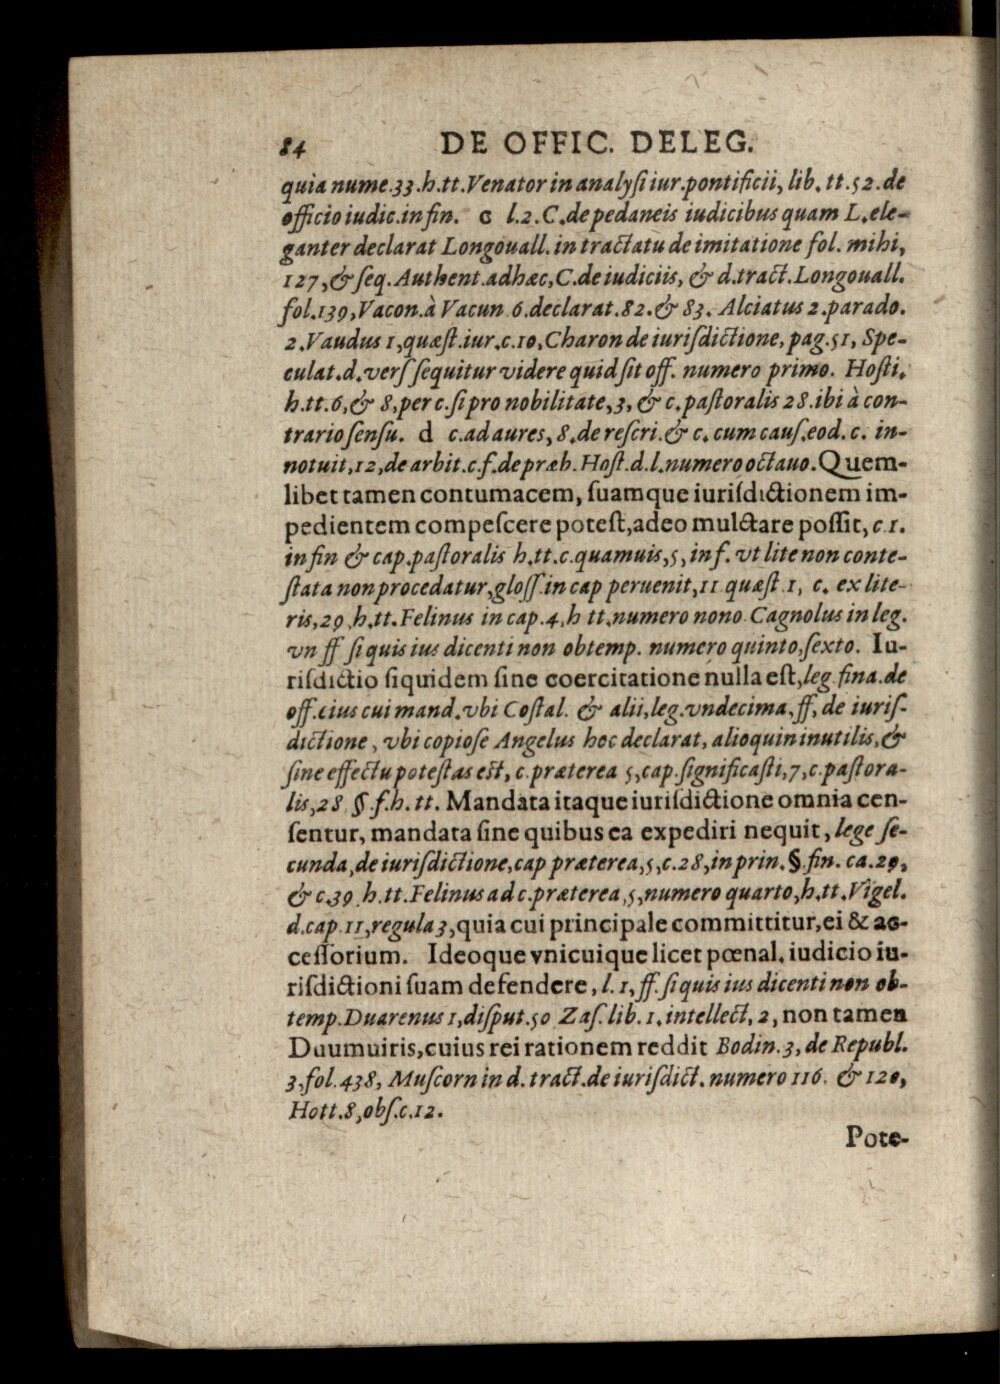 84 DE OFFIC. DELEG.
quia nume.33.h.tt.Venator in analyſi iur.pontificii, lib. tt.52.de
officio iudic.in fin. c l.2.C.de pedaneis iudicibus quam L.ele-
ganter declarat Longouall. in tractatu de imitatione fol. mihi,
127,& ſeq. Authent.adhæc,C.de iudiciis, & d.tract.Longouall.
fol.139,Vacon.à Vacun 6.declarat.82.& 83. Alciatus 2.parado.
2.Vaudus 1,quæſt.iur.c.10,Charon de iuriſdictione, pag.51, Spe-
culat.d.verſ ſequitur videre quid ſit off. numero primo. Hoſti.
h.tt.6,& 8,per c.ſi pro nobilitate,3, & c.paſtoralis 28.ibi à con-
trario ſenſu. d c.ad aures, 8.de reſcri.& c. cum cauſ.eod. c. in-
notuit,12,de arbit.c.f.de præb.Hoſt.d.l.numero octauo.Quem-
libet tamen contumacem, ſuamque iuriſdictionem im-
pedientem compeſcere poteſt,adeo mulctare poſſit, c.1.
in fin & cap.paſtoralis h.tt.c.quamuis,5, in f. vt lite non conte-
ſtata non procedatur,gloſſ.in cap peruenit,11 quæſt 1, c. ex lite-
ris,29 h.tt.Felinus in cap.4,h tt,numero nono Cagnolus in leg.
vn ff ſi quis ius dicenti non obtemp. numero quinto,ſexto. Iu-
riſdictio ſiquidem ſine coercitatione nulla eſt,leg.fina.de
off.eius cui mand.vbi Coſtal. & alii,leg.vndecima,ff, de iuriſ-
dictione, vbi copioſe Angelus hoc declarat, alioquin inutilis,&
ſine effectu poteſtas eſt, c.præterea 5,cap.ſignificaſti,7,c.paſtora-
lis,28 §.f.h. tt. Mandata itaque iuriſdictione omnia cen-
ſentur, mandata ſine quibus ea expediri nequit, lege ſe-
cunda,de iuriſdictione,cap præterea,5,c.28,in prin.§.fin. ca.29,
& c.39 h.tt.Felinus ad c.præterea,5,numero quarto,h.tt.Vigel.
d.cap.11,regula 3,quia cui principale committitur,ei & ac-
ceſſorium. Ideoque vnicuique licet pœnal. iudicio iu-
riſdictioni ſuam defendere, l.1,ff.ſi quis ius dicenti non ob-
temp.Duarenus 1,diſput.50 Zaſ.lib.1.intellect,2, non tamen
Duumuiris,cuius rei rationem reddit Bodin.3, de Republ.
3,fol.438, Muſcorn in d. tract.de iuriſdict. numero 116. & 120,
Hott.8,obſ.c.12.
Pote-